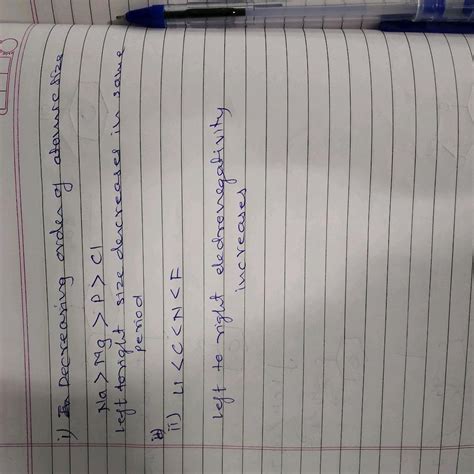 i) Decreasing order of atomic size
Na > Mg > P > Cl
Left to right size decreases in same
period
ii) Li < C < N < F
Left to right electronegativity
increases